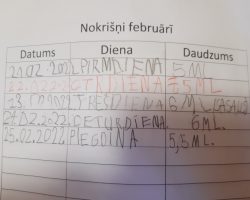 Nokrišņi februārī
Datums Diena Daudzums
21.02.2022 PIRMDIENA 5 ML
22.02.2022 OTRDIENA 5,5 ML
23.02.2022 TREŠDIENA 6 ML
24.02.2022 CETURDIENA 6 ML.
25.02.2022 PIEGDINA 5,5 ML.